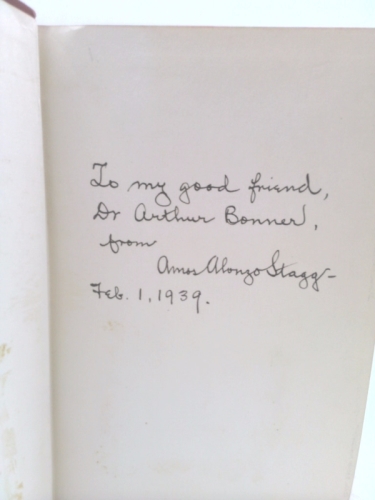 To my good friend,
Dr Arthur Bonner,
from
Amos Alonzo Stagg-
Feb. 1, 1939.